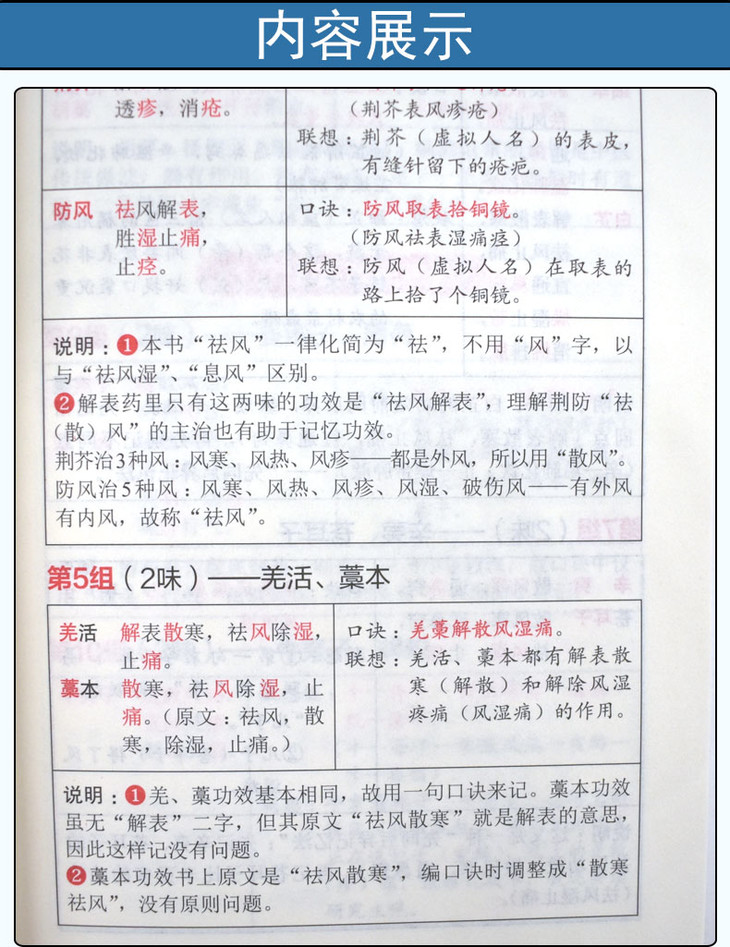 内容展示
透疹，消疮。
（荆芥表风疹疮）
联想：荆芥（虚拟人名）的表皮，
有缝针留下的疮疤。
防风 祛风解表，
胜湿止痛，
止痉。
口诀：防风取表拾铜镜。
（防风祛表湿痛痉）
联想：防风（虚拟人名）在取表的
路上拾了个铜镜。
说明：❶本书“祛风”一律化简为“祛”，不用“风”字，以
与“祛风湿”、“息风”区别。
❷解表药里只有这两味的功效是“祛风解表”，理解荆防“祛
（散）风”的主治也有助于记忆功效。
荆芥治3种风：风寒、风热、风疹——都是外风，所以用“散风”。
防风治5种风：风寒、风热、风疹、风湿、破伤风——有外风
有内风，故称“祛风”。
第5组（2味）——羌活、藁本
羌活 解表散寒，祛风除湿，
止痛。
藁本 散寒，祛风除湿，止
痛。（原文：祛风，散
寒，除湿，止痛。）
口诀：羌藁解散风湿痛。
联想：羌活、藁本都有解表散
寒（解散）和解除风湿
疼痛（风湿痛）的作用。
说明：❶羌、藁功效基本相同，故用一句口诀来记。藁本功效
虽无“解表”二字，但其原文“祛风散寒”就是解表的意思，
因此这样记没有问题。
❷藁本功效书上原文是“祛风散寒”，编口诀时调整成“散寒
祛风”，没有原则问题。